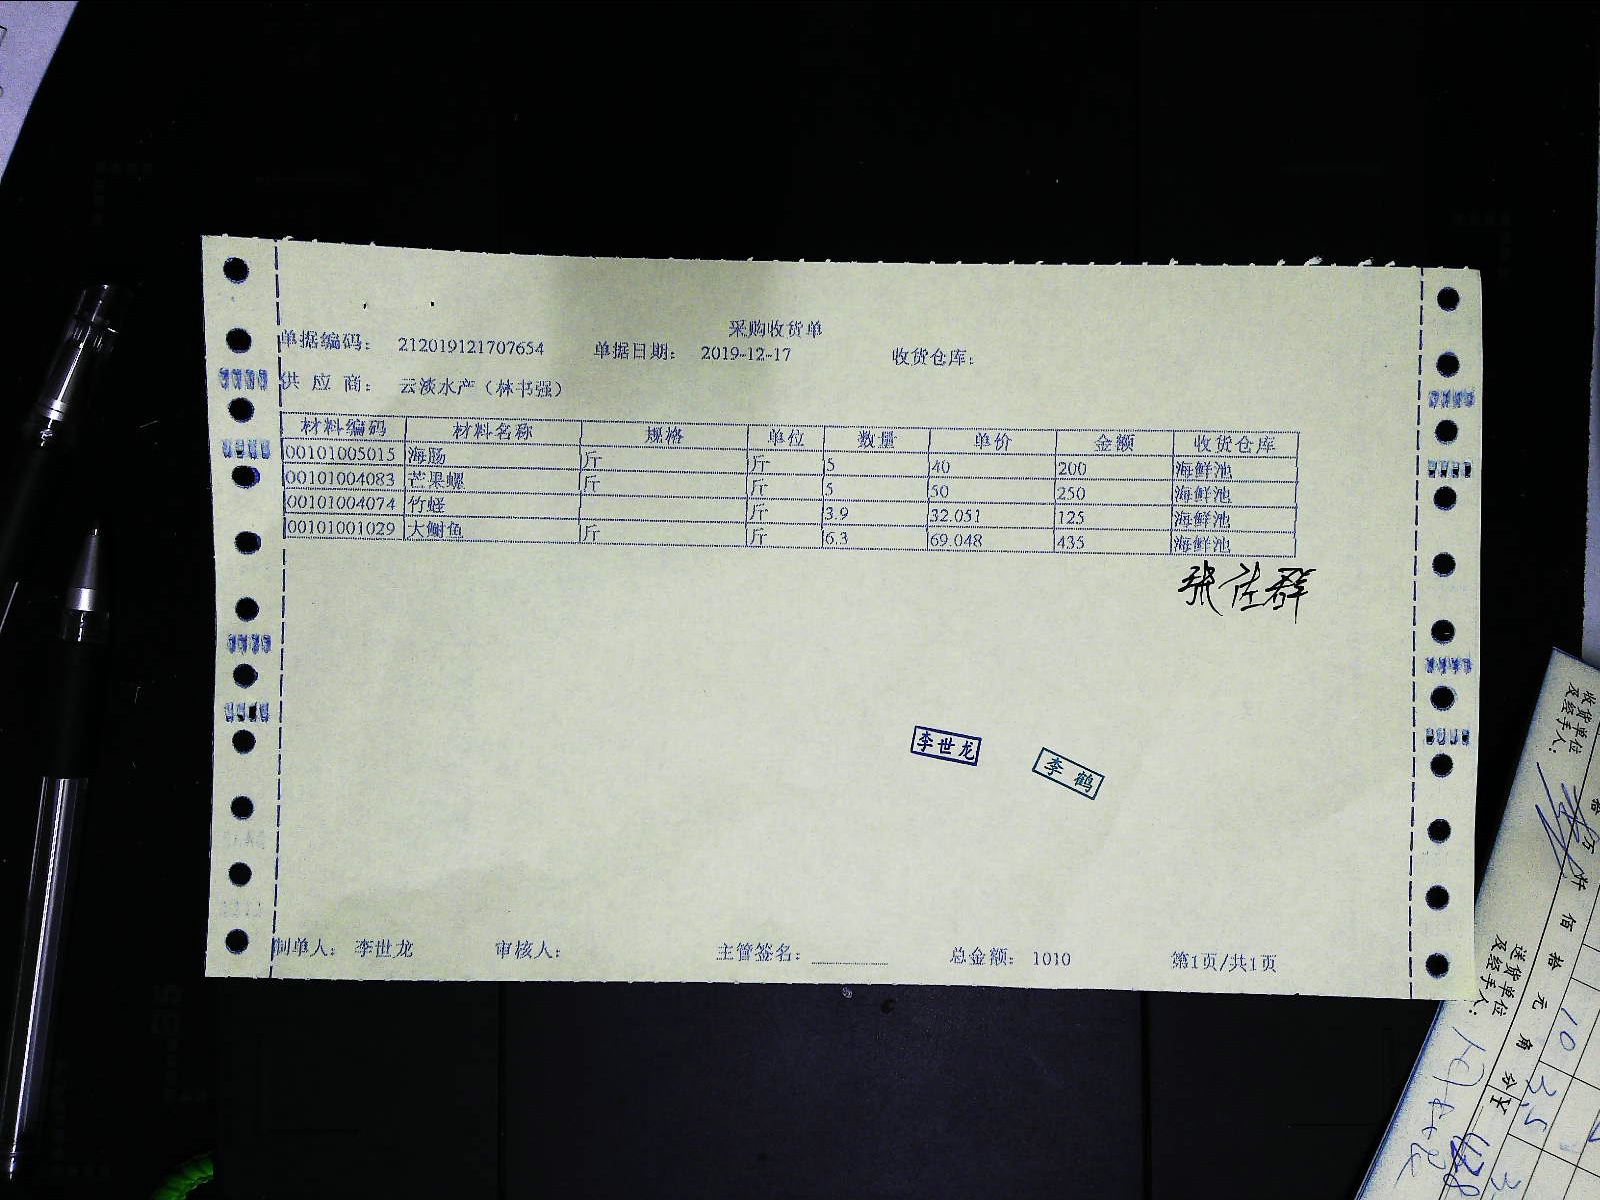 采购收货单
单据编码： 212019121707654 单据日期： 2019-12-17 收货仓库：
供 应 商： 云淡水产（林书强）
材料编码 材料名称 规格 单位 数量 单价 金额 收货仓库
00101005015 海肠 斤 斤 5 40 200 海鲜池
00101004083 芒果螺 斤 斤 5 50 250 海鲜池
00101004074 竹蛏 斤 3.9 32.051 125 海鲜池
00101001029 大鲥鱼 斤 斤 6.3 69.048 435 海鲜池
李世龙
李鹤
制单人： 李世龙 审核人： 主管签名： 总金额： 1010 第1页/共1页
收货单位
及经手人：
送货单位
及经手人：
佰 拾 元 角 分
10
3.5